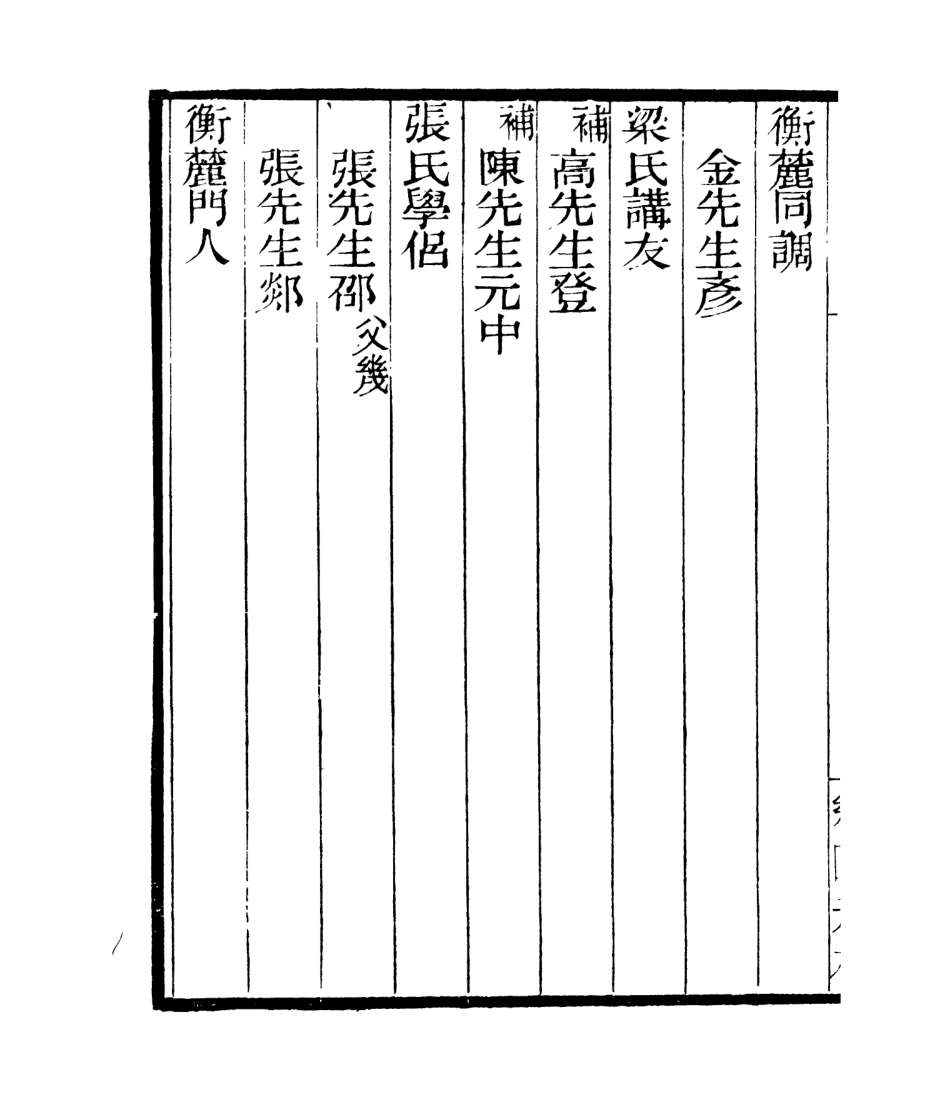 衡麓同調
金先生彥
梁氏講友
補高先生登
補陳先生元中
張氏學侶
張先生邵父幾
張先生郯
衡麓門人